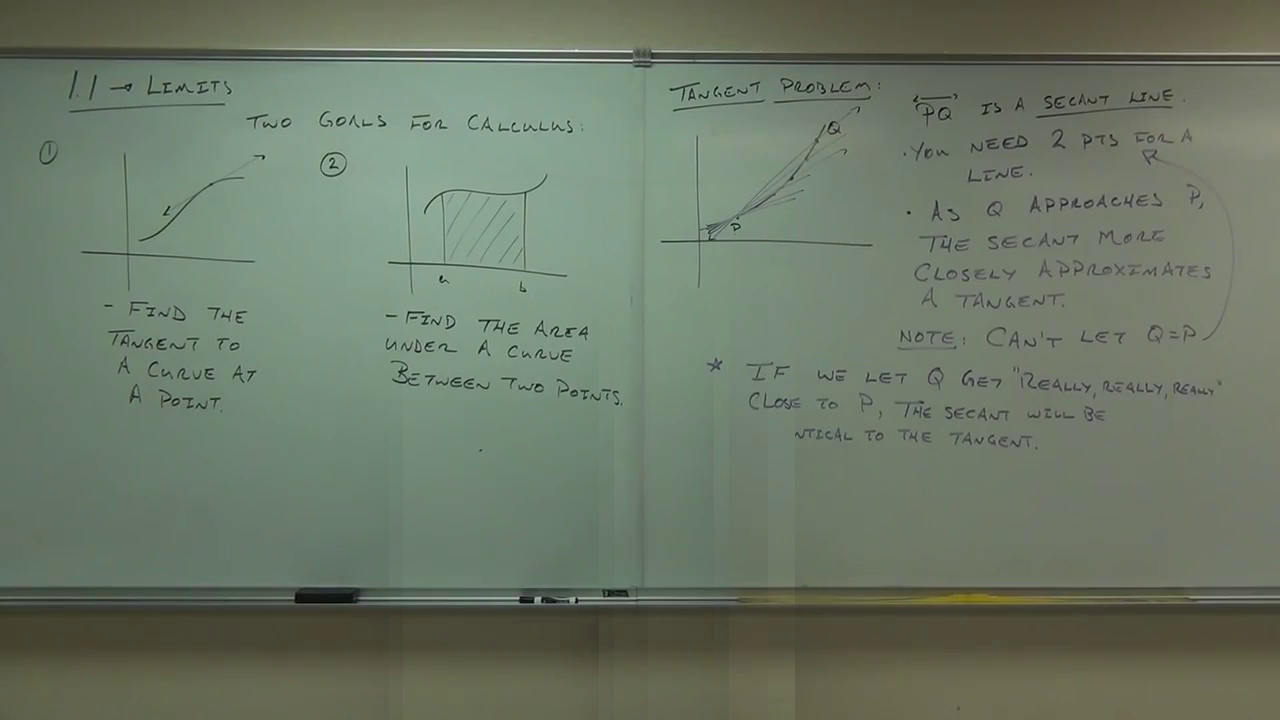 1.1 → LIMITS
TWO GOALS FOR CALCULUS:
①
- FIND THE
TANGENT TO
A CURVE AT
A POINT.
②
a b
- FIND THE AREA
UNDER A CURVE
BETWEEN TWO POINTS.
TANGENT PROBLEM:
Q
P
PQ IS A SECANT LINE.
• YOU NEED 2 PTS FOR A
LINE.
• AS Q APPROACHES P,
THE SECANT MORE
CLOSELY APPROXIMATES
A TANGENT.
NOTE: CAN'T LET Q=P
* IF WE LET Q GET "REALLY, REALLY, REALLY"
CLOSE TO P, THE SECANT WILL BE
NTICAL TO THE TANGENT.